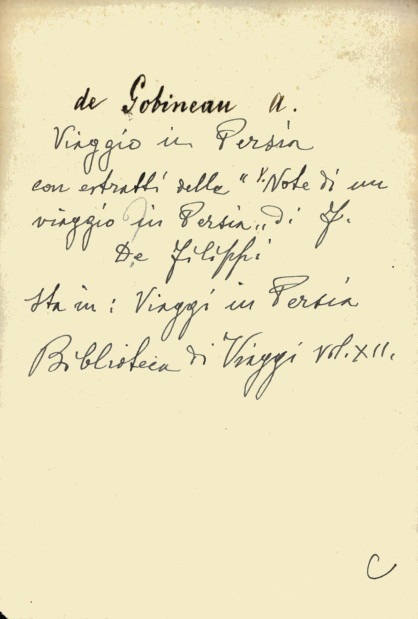 de Gobineau A.
Viaggio in Persia
con estratti delle "Note di un
viaggio in Persia" di F.
De Filippi
Sta in: Viaggi in Persia
Biblioteca di Viaggi vol. XII.
C